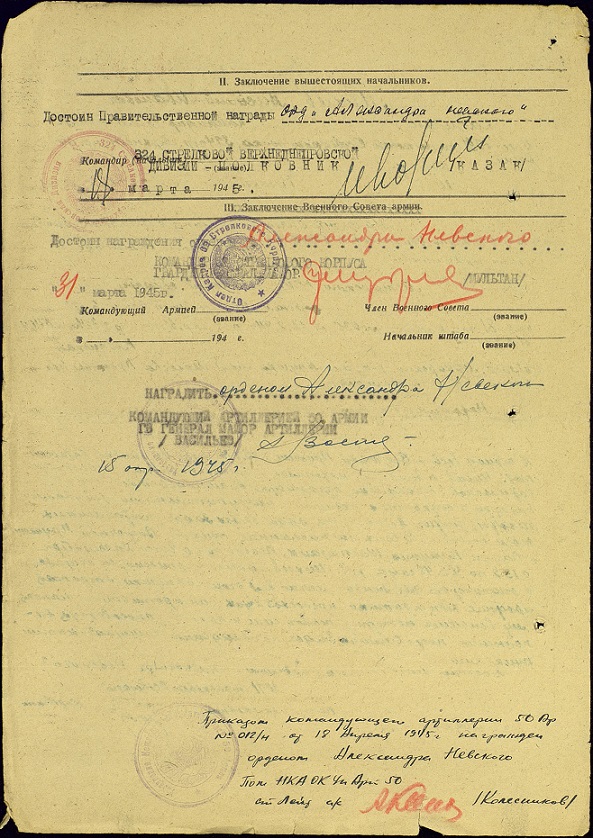 II. Заключение вышестоящих начальников.
Достоин Правительственной награды орд. „Александра Невского"
Командир
324 СТРЕЛКОВОЙ ВЕРХНЕДНЕПРОВСКОЙ
ДИВИЗИИ - ПОЛКОВНИК /КАЗАК/
марта 1945.
III. Заключение Военного Совета армии.
Достоин награждения Александра Невского
КОРПУСА
/МУЛЬТАН/
"31" марта 1945г.
Командующий Армией
Член Военного Совета
(звание)
(звание)
" " 194 г.
Начальник штаба
(звание)
НАГРАДИТЬ орденом Александра Невского
КОМАНДУЮЩИЙ АРТИЛЛЕРИЕЙ 50 АРМИИ
ГВ ГЕНЕРАЛ МАЙОР АРТИЛЛЕРИИ
/ ВАСИЛЬЕВ/
15 апр 1945 г.
Приказом командующего артиллерии 50 Ар
№ 012/н от 18 Апреля 1945 г награжден
орденом Александра Невского
50
/Колесников/